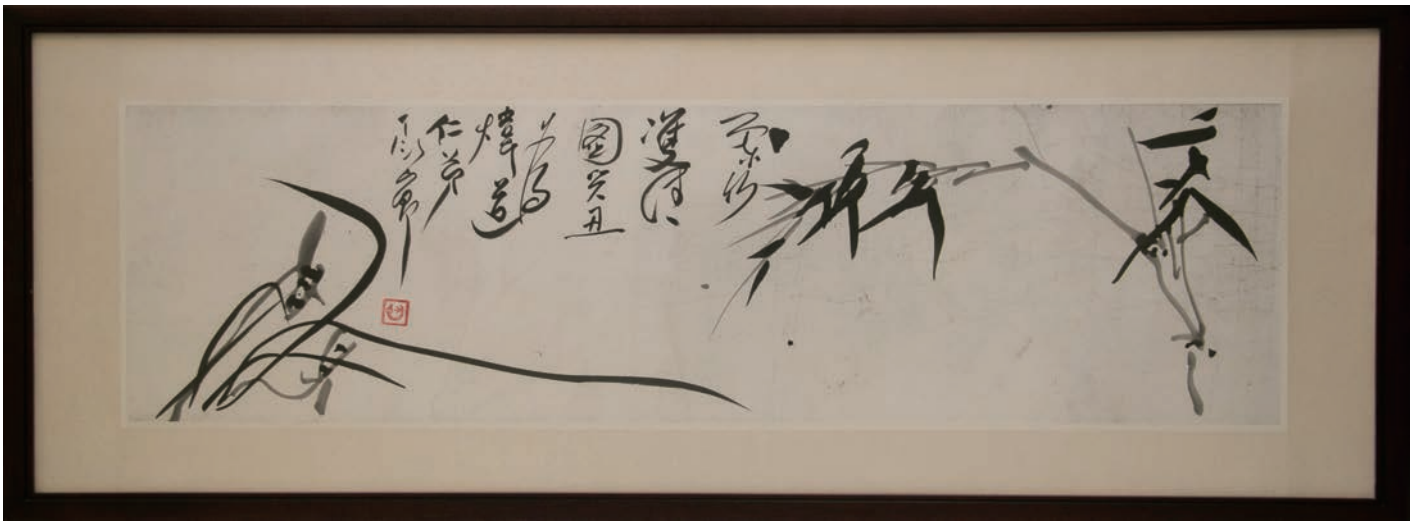 蘭竹
雙清
圖癸丑
為
煒道
仁弟
丁衍庸